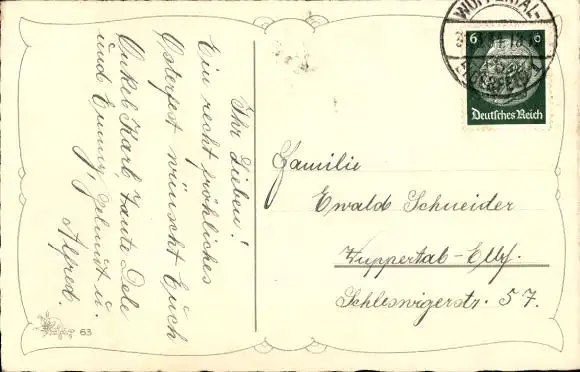 Ihr Lieben!
Ein recht fröhliches
Osterfest wünscht Euch
Onkel Karl, Tante Dele
und Emmy, Helmut u.
Alfred.
63
WUPPERTAL-
ELBERFELD
6 6
Deutsches Reich
Familie
Ewald Schneider
Wuppertal-Elbf.
Schleswigerstr. 57.